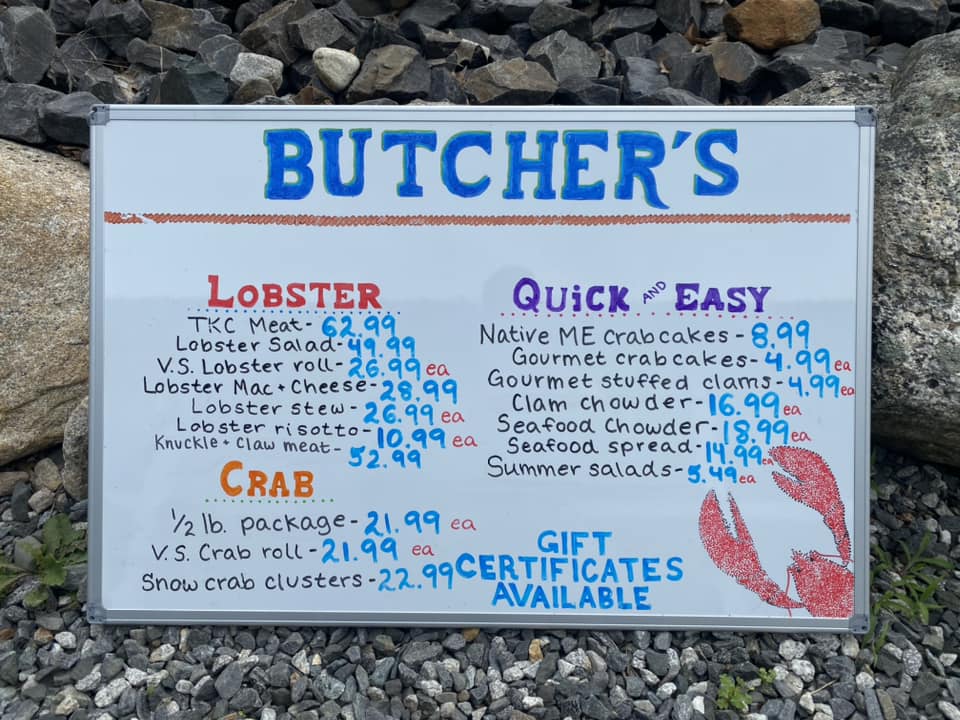 BUTCHER'S
LOBSTER
TKC Meat- 62.99
Lobster Salad- 49.99
V.S. Lobster roll- 26.99 ea
Lobster Mac + Cheese- 28.99
Lobster stew- 26.99 ea
Lobster risotto- 10.99 ea
Knuckle + Claw meat- 52.99
CRAB
1/2 lb. package- 21.99 ea
V.S. Crab roll- 21.99 ea
Snow crab clusters- 22.99
QUiCK AND EASY
Native ME crabcakes- 8.99
Gourmet crabcakes- 4.99 ea
Gourmet stuffed clams- 4.99 ea
Clam chowder- 16.99 ea
Seafood Chowder- 18.99 ea
Seafood spread- 14.99 ea
Summer salads- 5.49 ea
GIFT
CERTIFICATES
AVAILABLE